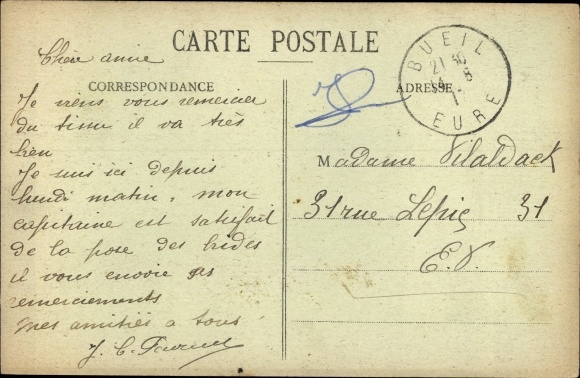 CARTE POSTALE
CORRESPONDANCE
ADRESSE
BUEIL
21 30
EURE
Chère amie
Je viens vous remercier
du timu il va très
bien
Je suis ici depuis
lundi matin, mon
capitaine est satisfait
de la pose des brides
il vous envoie ses
remerciements
mes amitiés a tous.
J. C.
Madame Vilaldack
31 rue Lepic 31
E.V.